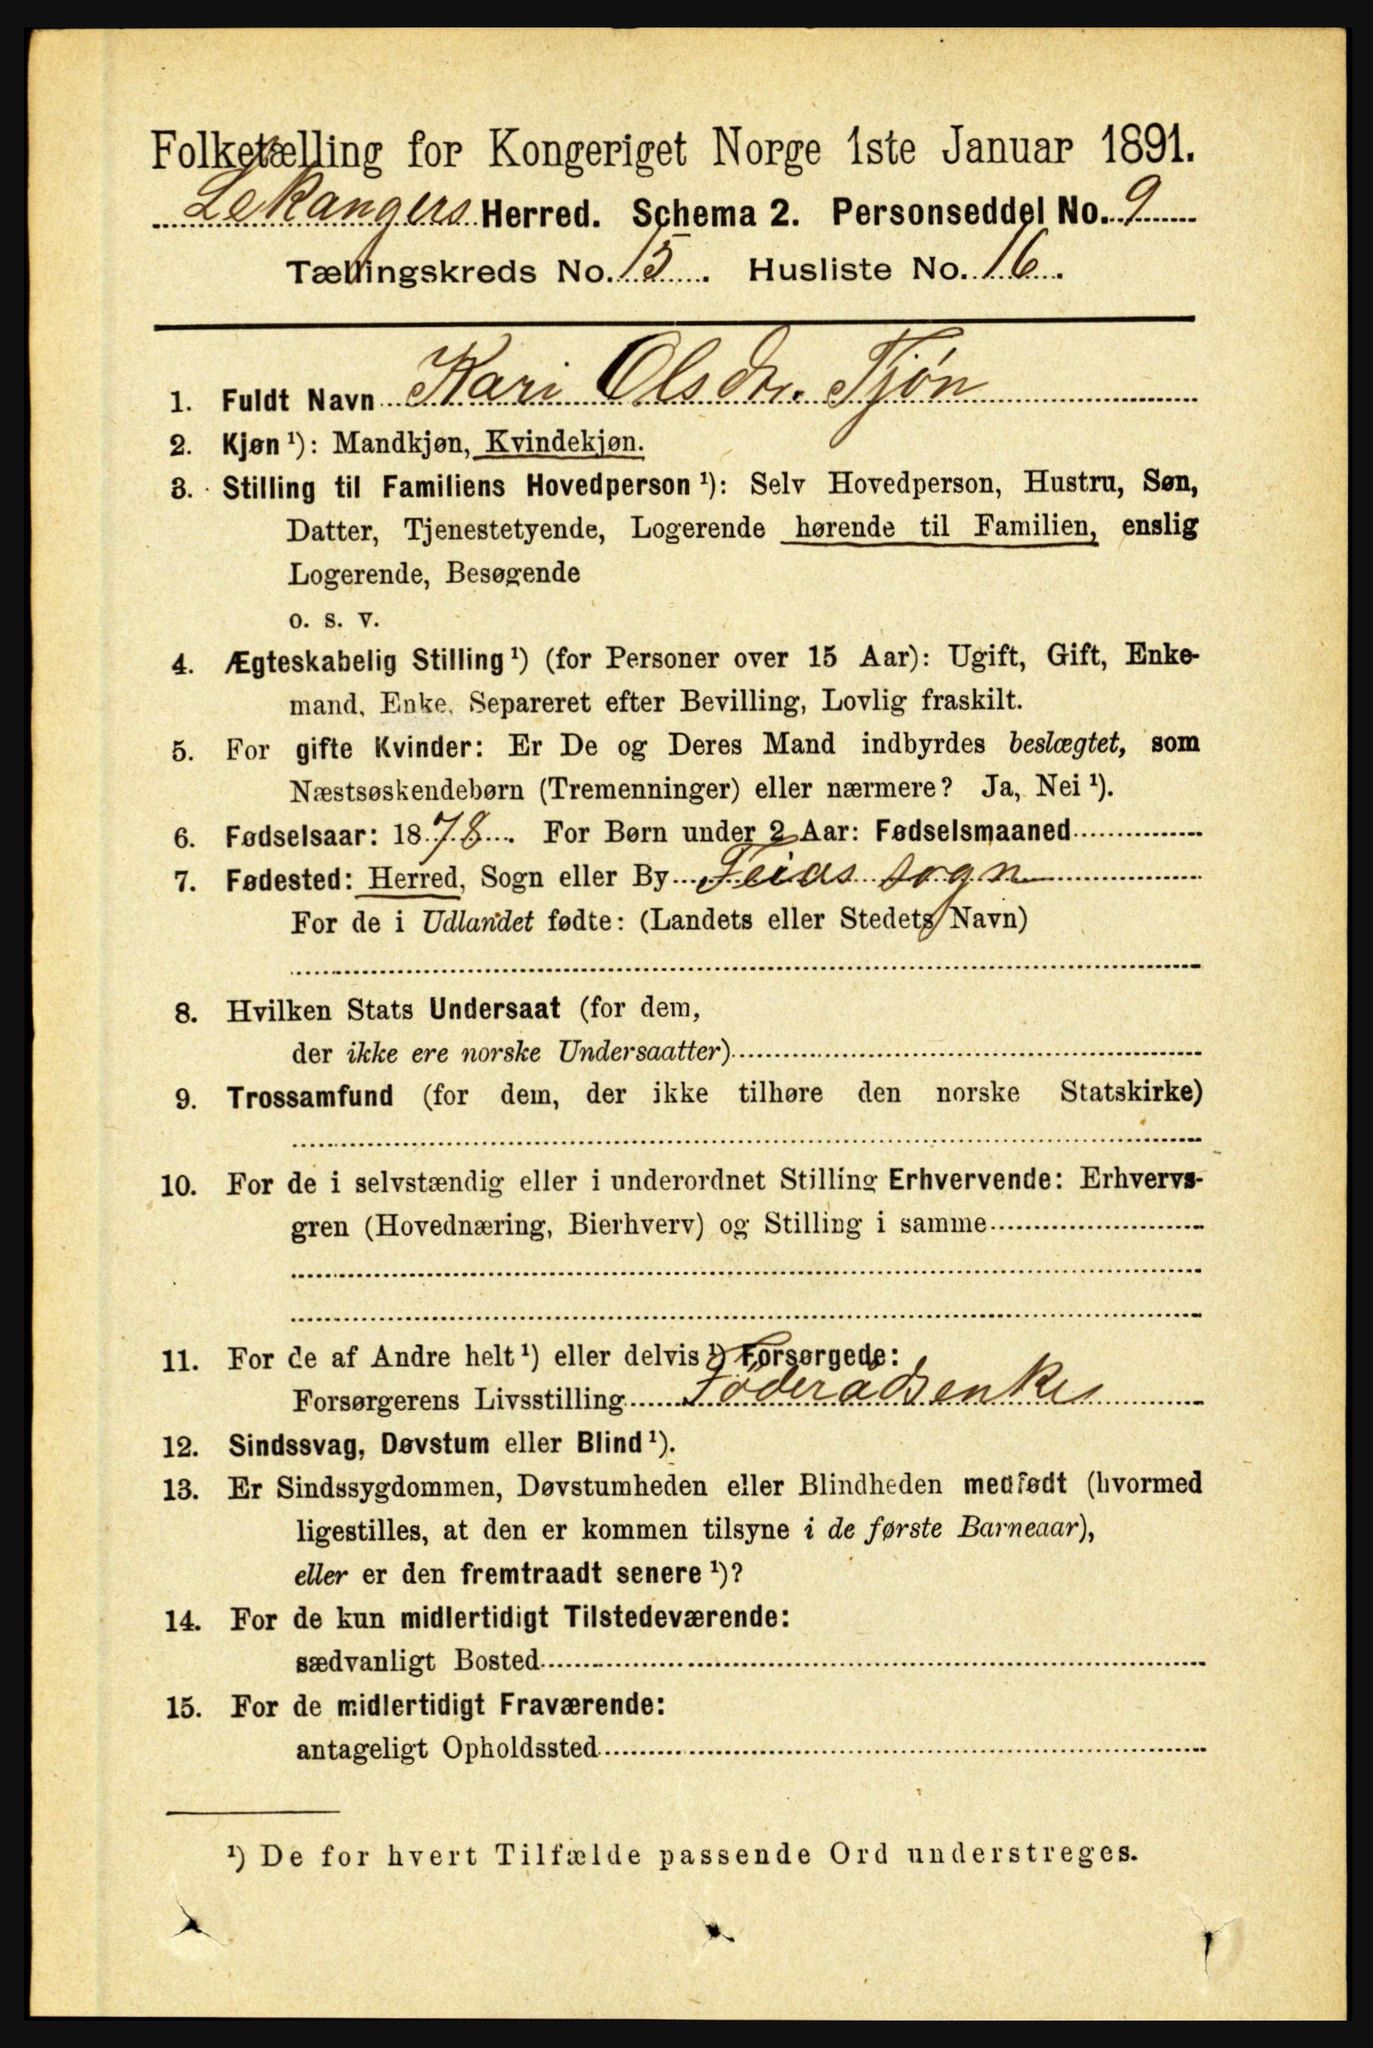 Folketælling for Kongeriget Norge 1ste Januar 1891.
Lekangers Herred. Schema 2. Personseddel No. 9
Tællingskreds No. 15. Husliste No. 16.
1. Fuldt Navn Kari Olsdtr. Tjøn
2. Kjøn ¹): Mandkjøn, Kvindekjøn.
3. Stilling til Familiens Hovedperson ¹): Selv Hovedperson, Hustru, Søn,
Datter, Tjenestetyende, Logerende hørende til Familien, enslig
Logerende, Besøgende
o. s. v.
4. Ægteskabelig Stilling ¹) (for Personer over 15 Aar): Ugift, Gift, Enke-
mand, Enke, Separeret efter Bevilling, Lovlig fraskilt.
5. For gifte Kvinder: Er De og Deres Mand indbyrdes beslægtet, som
Næstsøskendebørn (Tremenninger) eller nærmere? Ja, Nei ¹).
6. Fødselsaar: 1878. For Børn under 2 Aar: Fødselsmaaned
7. Fødested: Herred, Sogn eller By Feios sogn
For de i Udlandet fødte: (Landets eller Stedets Navn)
8. Hvilken Stats Undersaat (for dem,
der ikke ere norske Undersaatter)
9. Trossamfund (for dem, der ikke tilhøre den norske Statskirke)
10. For de i selvstændig eller i underordnet Stilling Erhvervende: Erhvervs-
gren (Hovednæring, Bierhverv) og Stilling i samme
11. For de af Andre helt ¹) eller delvis ¹) Forsørgede:
Forsørgerens Livsstilling Föderådsenke
12. Sindssvag, Døvstum eller Blind ¹).
13. Er Sindssygdommen, Døvstumheden eller Blindheden medfødt (hvormed
ligestilles, at den er kommen tilsyne i de første Barneaar),
eller er den fremtraadt senere ¹)?
14. For de kun midlertidigt Tilstedeværende:
sædvanligt Bosted
15. For de midlertidigt Fraværende:
antageligt Opholdssted
¹) De for hvert Tilfælde passende Ord understreges.